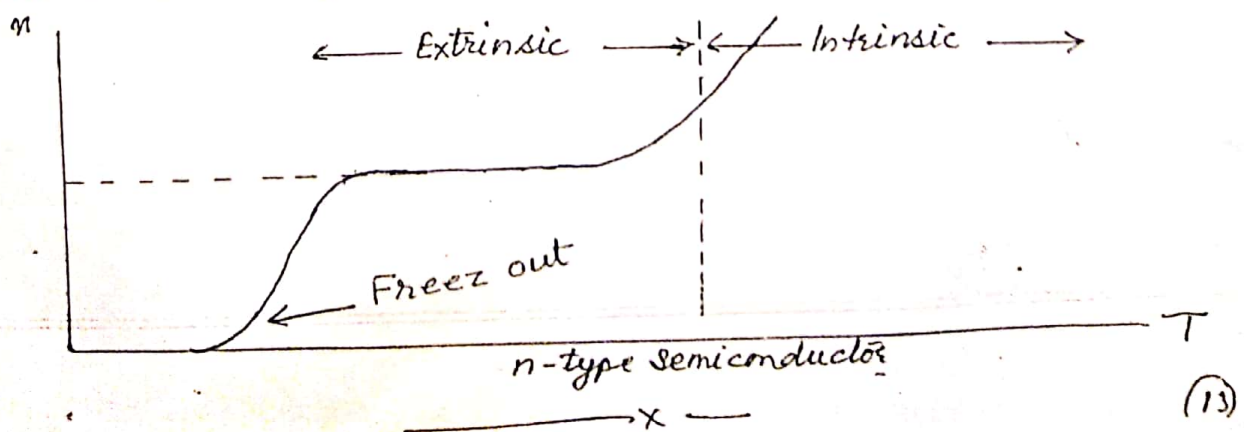 n
Extrinsic
Intrinsic
Freez out
T
n-type semiconductor
x
(13)